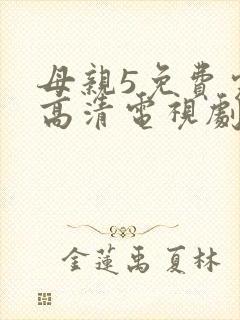 母親5免費
高清電視劇
金蓮禹夏林